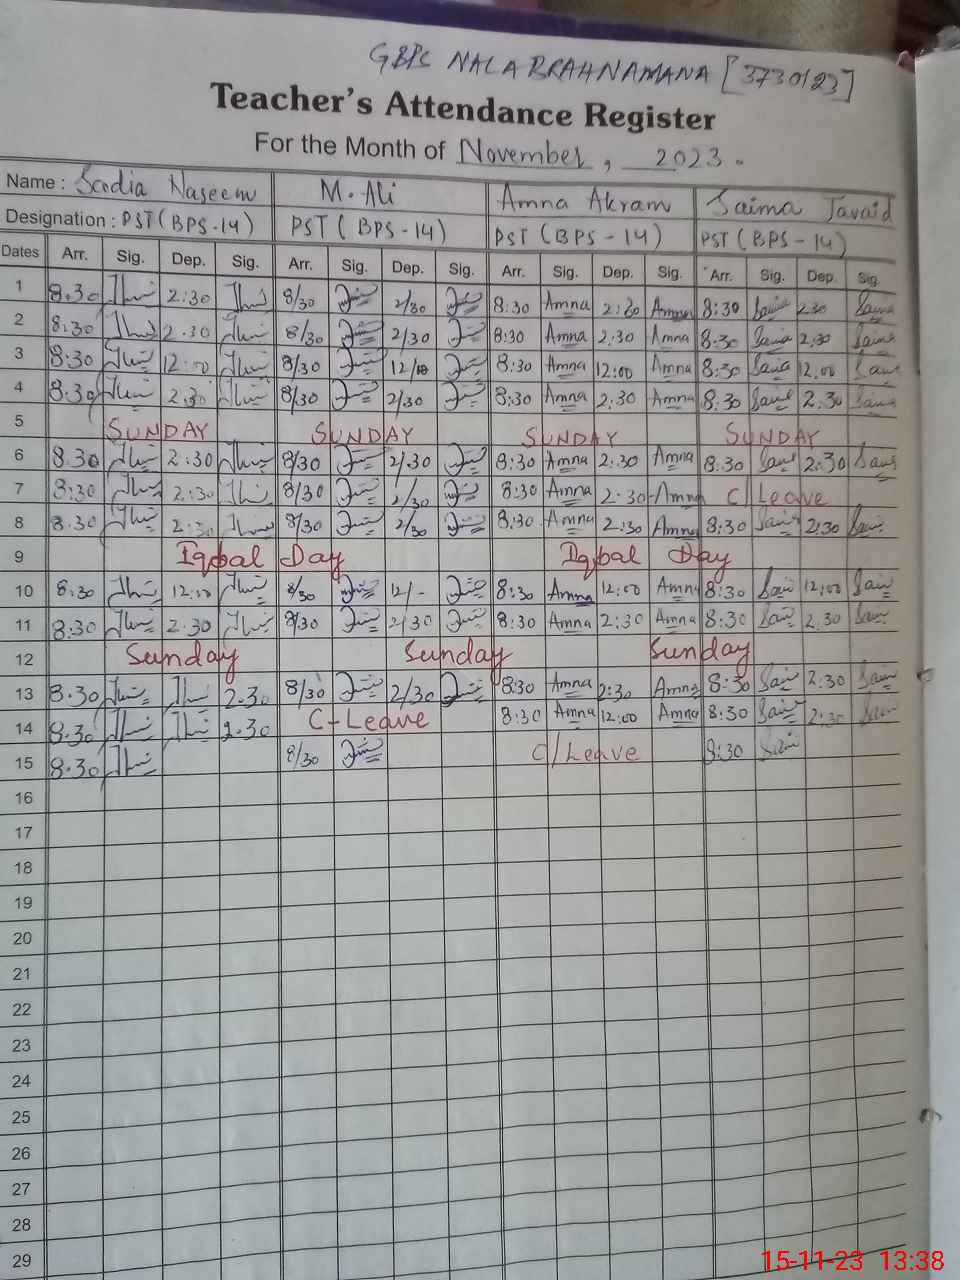 GBPS NALA BRAHNAMANA [3730123]
Teacher's Attendance Register
For the Month of November, 2023.
Name : Sadia Naseem M. Ali Amna Akram Saima Javaid
Designation : PST (BPS-14) PST ( BPS-14) PST (BPS-14) PST (BPS-14)
Dates Arr. Sig. Dep. Sig. Arr. Sig. Dep. Sig. Arr. Sig. Dep. Sig. Arr. Sig. Dep. Sig.
1 8.30 2:30 8/30 2/30 8:30 Amna 2:30 Amna 8:30 2.30
2 8:30 2.30 8/30 2/30 8:30 Amna 2:30 Amna 8:30 2:30
3 8:30 12:00 8/30 8:30 Amna 12:00 Amna 8:30 12:00
4 8:30 2:30 8/30 2/30 8:30 Amna 2:30 Amna 8:30 2.30
5 SUNDAY SUNDAY SUNDAY SUNDAY
6 8.30 2:30 8/30 2/30 8:30 Amna 2:30 Amna 8:30 2:30
7 8:30 2:30 8/30 2/30 8:30 Amna 2:30 Amna C/Leave
8 8:30 2:30 8/30 2/30 8:30 Amna 2:30 Amna 8:30 2:30
9 Iqbal Day Iqbal Day
10 8:30 12:00 8/30 12/- 8:30 Amna 12:00 Amna 8:30 12:00
11 8:30 2.30 8/30 2/30 8:30 Amna 2:30 Amna 8:30 2.30
12 Sunday Sunday Sunday
13 8.30 2.30 8/30 2/30 8:30 Amna 2:30 Amna 8:30 2:30
14 8.30 2.30 C-Leave 8:30 Amna 12:00 Amna 8:30 2:30
15 8.30 8/30 C/Leave 8:30
16
17
18
19
20
21
22
23
24
25
26
27
28
29
15-11-23 13:38